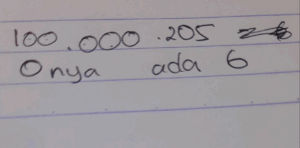 100.000.205
Onya ada 6